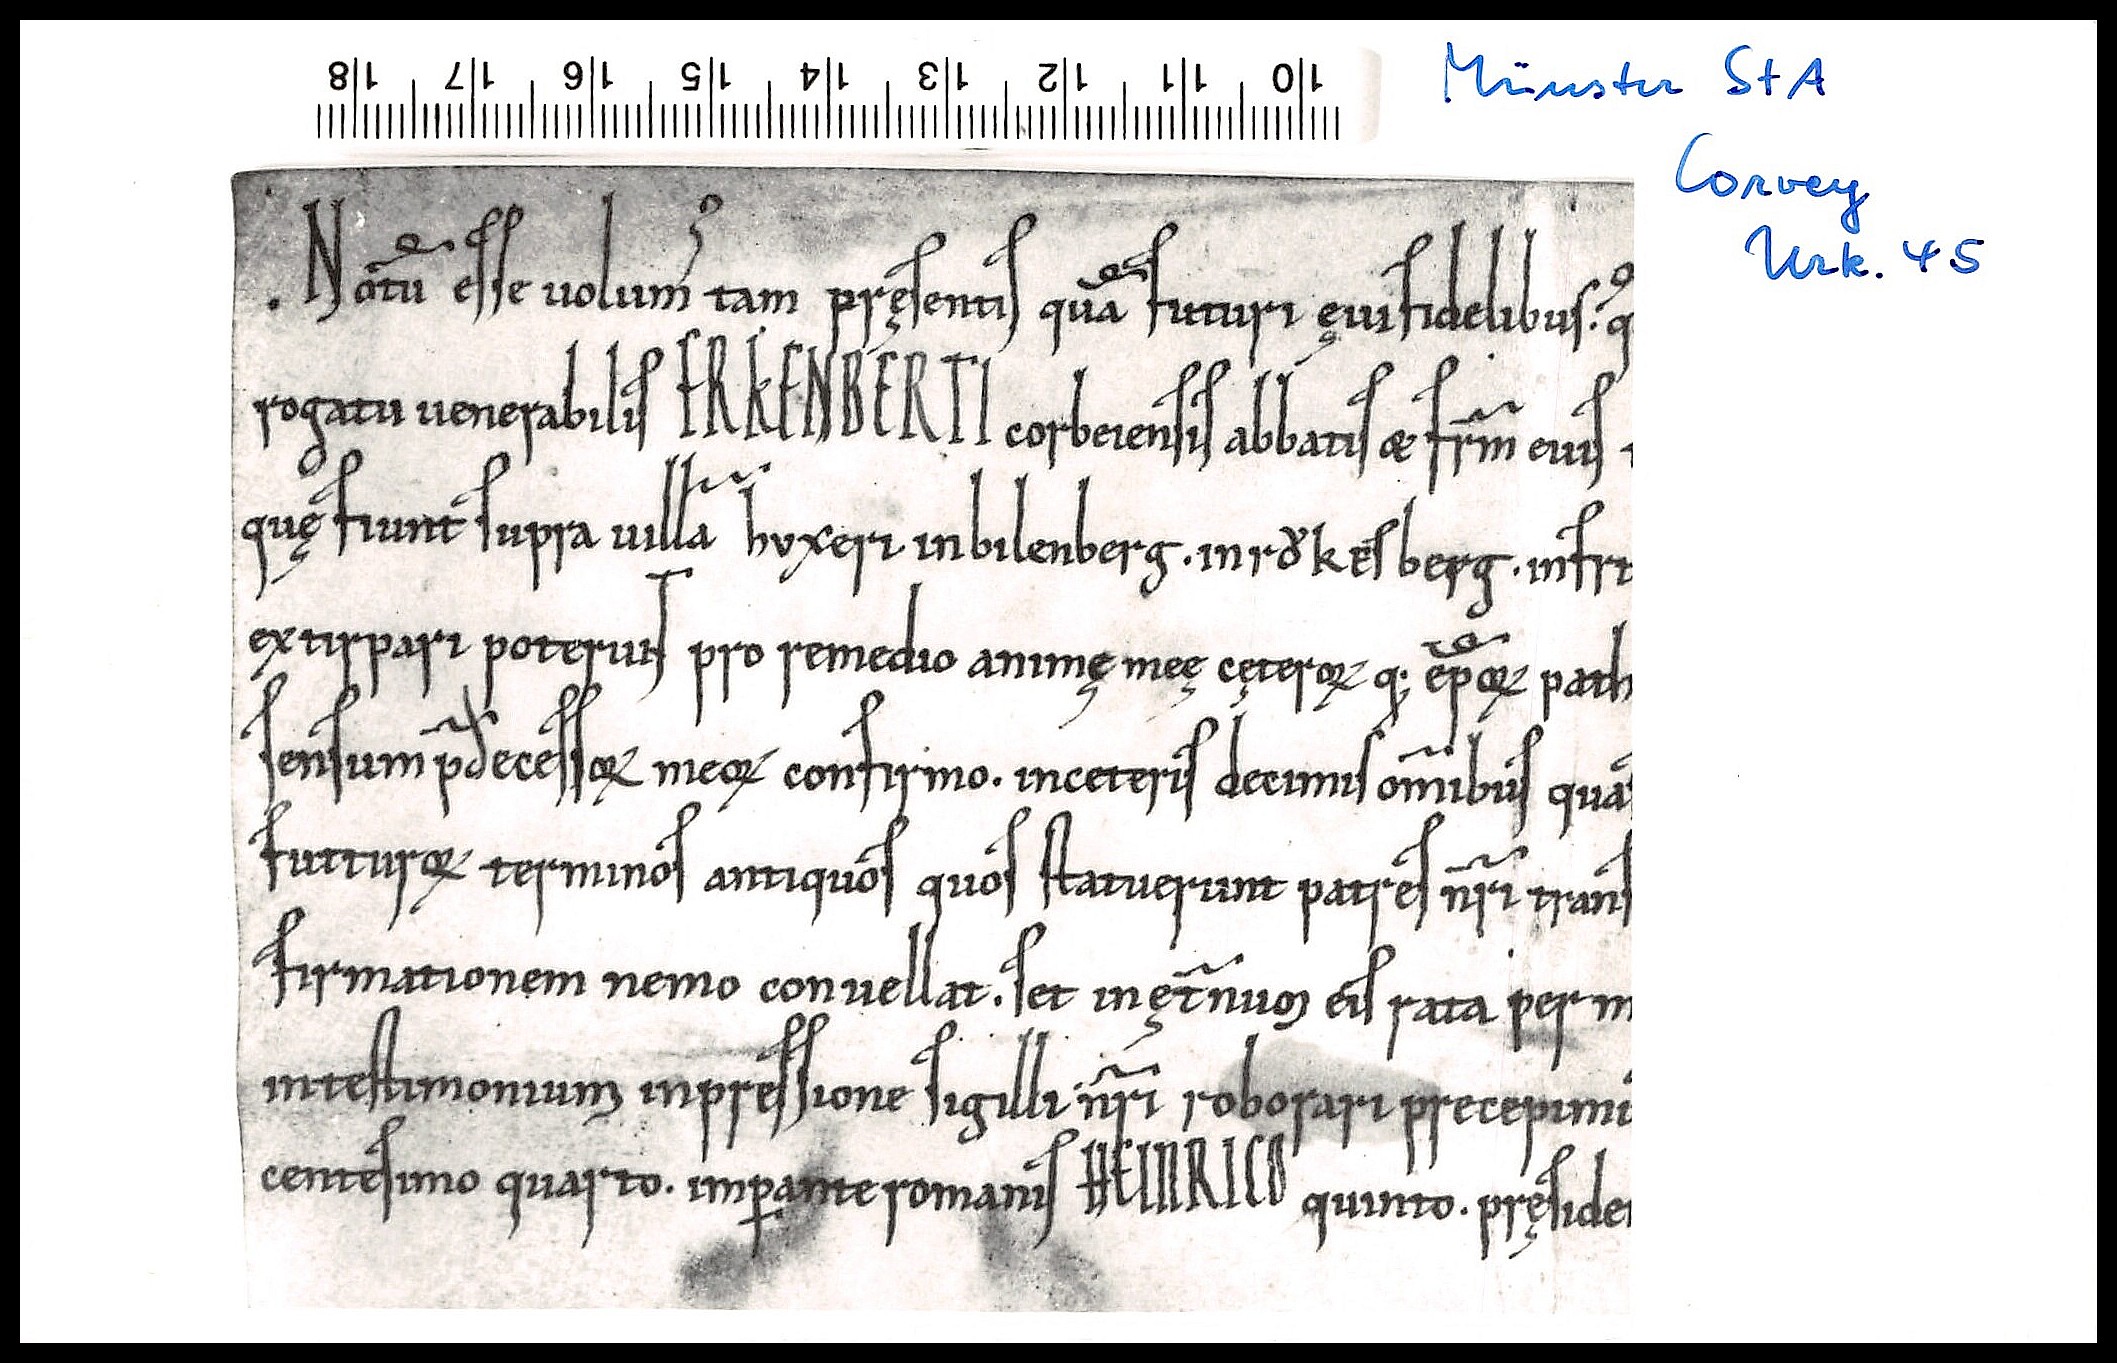 18 17 16 15 14 13 12 11 10
Münster StA
Corvey
Urk. 45
. Notū esse uolumꝰ tam pręsentis quā futuri ęui fidelibus. q
rogatu uenerabilis ERKENBERTI corbeiensis abbatis & fr̄m eius
quę fiunt supra uillā huxeri in bilenberg. in rǒkesberg. in
extirpari poterunt pro remedio animę meę cęteroꝝ q; ep̄oꝝ path
sensum p̄decessoꝝ meoꝝ confirmo. in ceteris decimis om̄ibus quas
futturoꝝ terminos antiquos quos statuerunt patres nr̄i trans
firmationem nemo conuellat. set in ęt̄num eis rata per m
in testimonium inpressione sigilli nr̄i roborari precepimꝰ
centesimo quarto. imꝑante romanis HEINRICO quinto. pręsiden